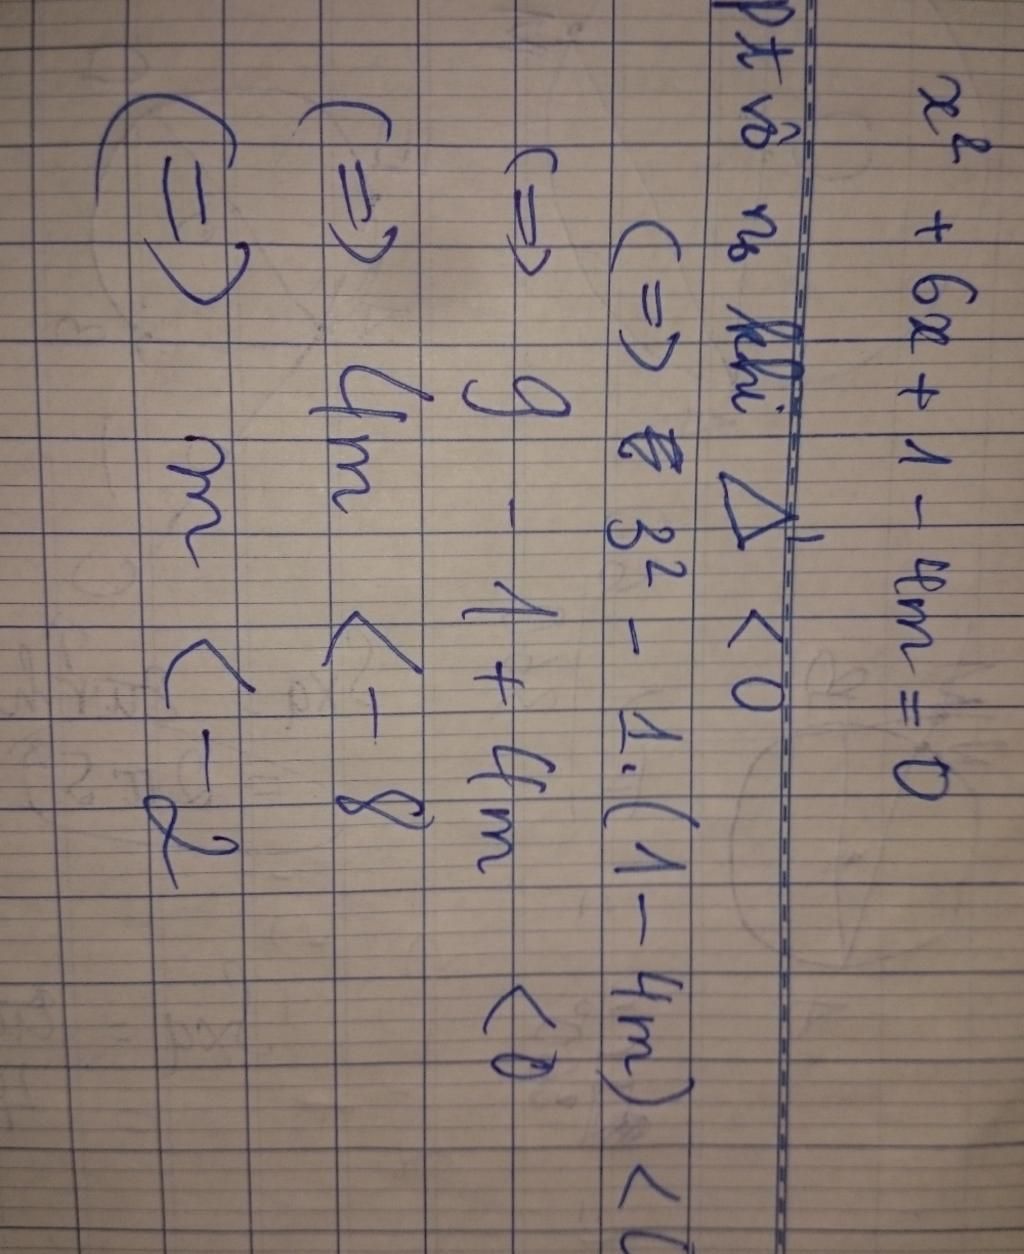 x² + 6x + 1 - 4m = 0
pt vô no khi Δ' < 0
(=) 3² - 1.(1 - 4m) < 0
(=) 9 - 1 + 4m < 0
(=) 4m < -8
(=) m < -2